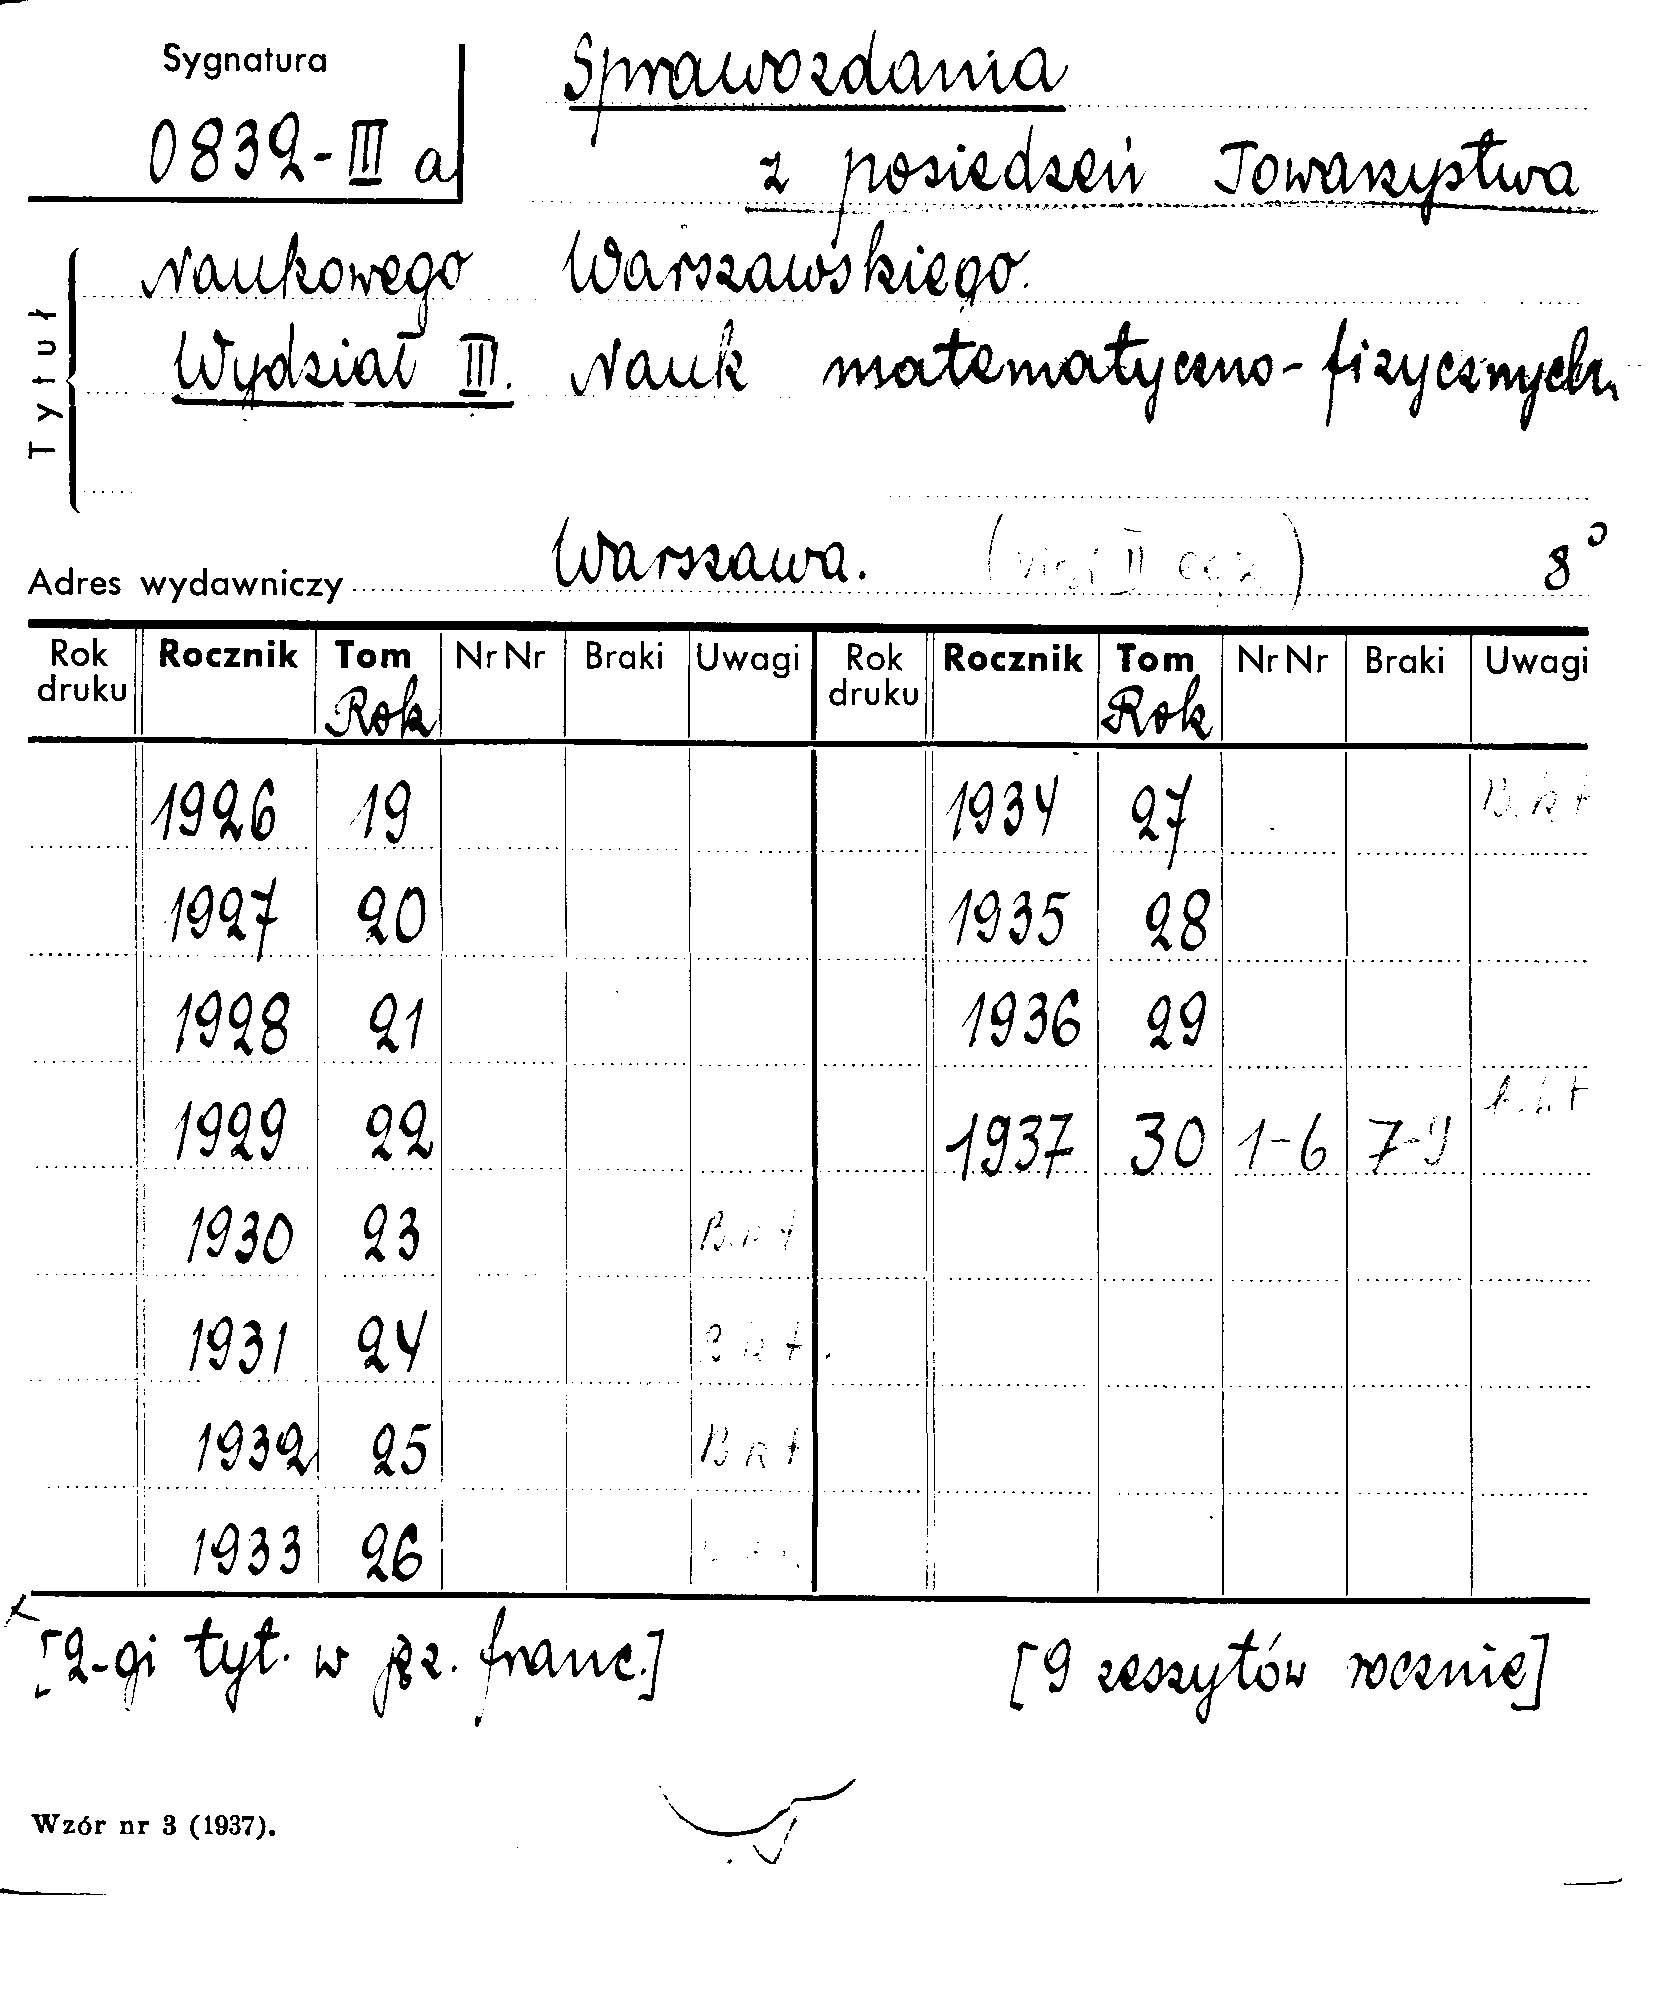 Sygnatura
0832-III a
Sprawozdania
z posiedzeń Towarzystwa
Naukowego Warszawskiego.
Wydział III. Nauk matematyczno-fizycznych.
Tytuł
Adres wydawniczy Warszawa. 8°
Rok druku Rocznik Tom Nr Nr Braki Uwagi Rok druku Rocznik Tom Nr Nr Braki Uwagi
Rok Rok
1926 19 1934 27
1927 20 1935 28
1928 21 1936 29
1929 22 1937 30 1-6 7-9
1930 23
1931 24
1932 25
1933 26
[2-gi tyt. w jęz. franc.] [9 zeszytów rocznie]
Wzór nr 3 (1937).